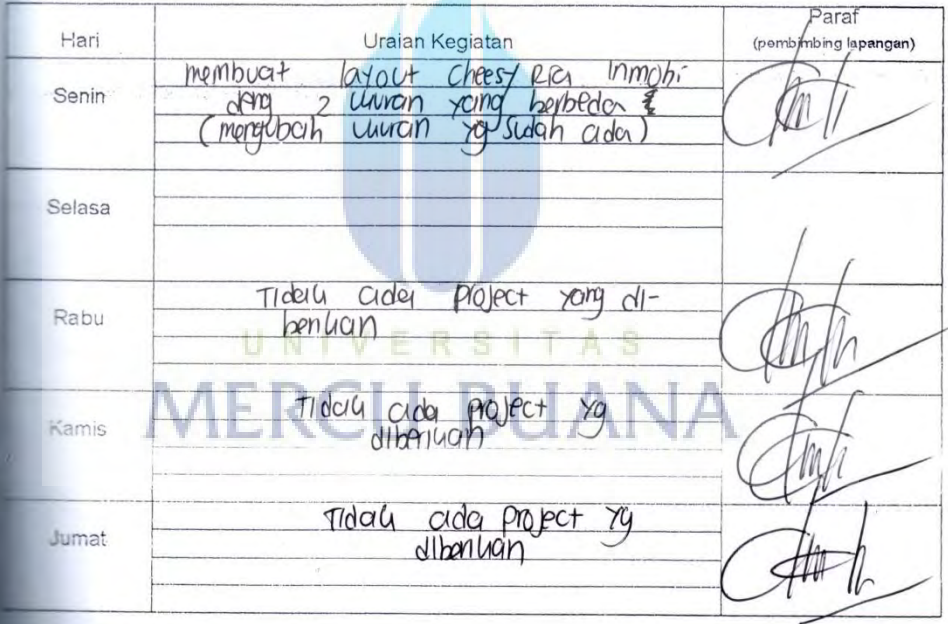 Hari
Uraian Kegiatan
Paraf
(pembimbing lapangan)
Senin
membuat layout Cheesy Ria Inmobi
deng 2 ukuran yang berbeda
(mengubah ukuran yg sudah ada)
Selasa
Rabu
Tidak ada project yang di-
berikan
UNIVERSITAS
MERCU BUANA
Kamis
Tidak ada project yg
diberikan
Jumat
Tidak ada project yg
diberikan